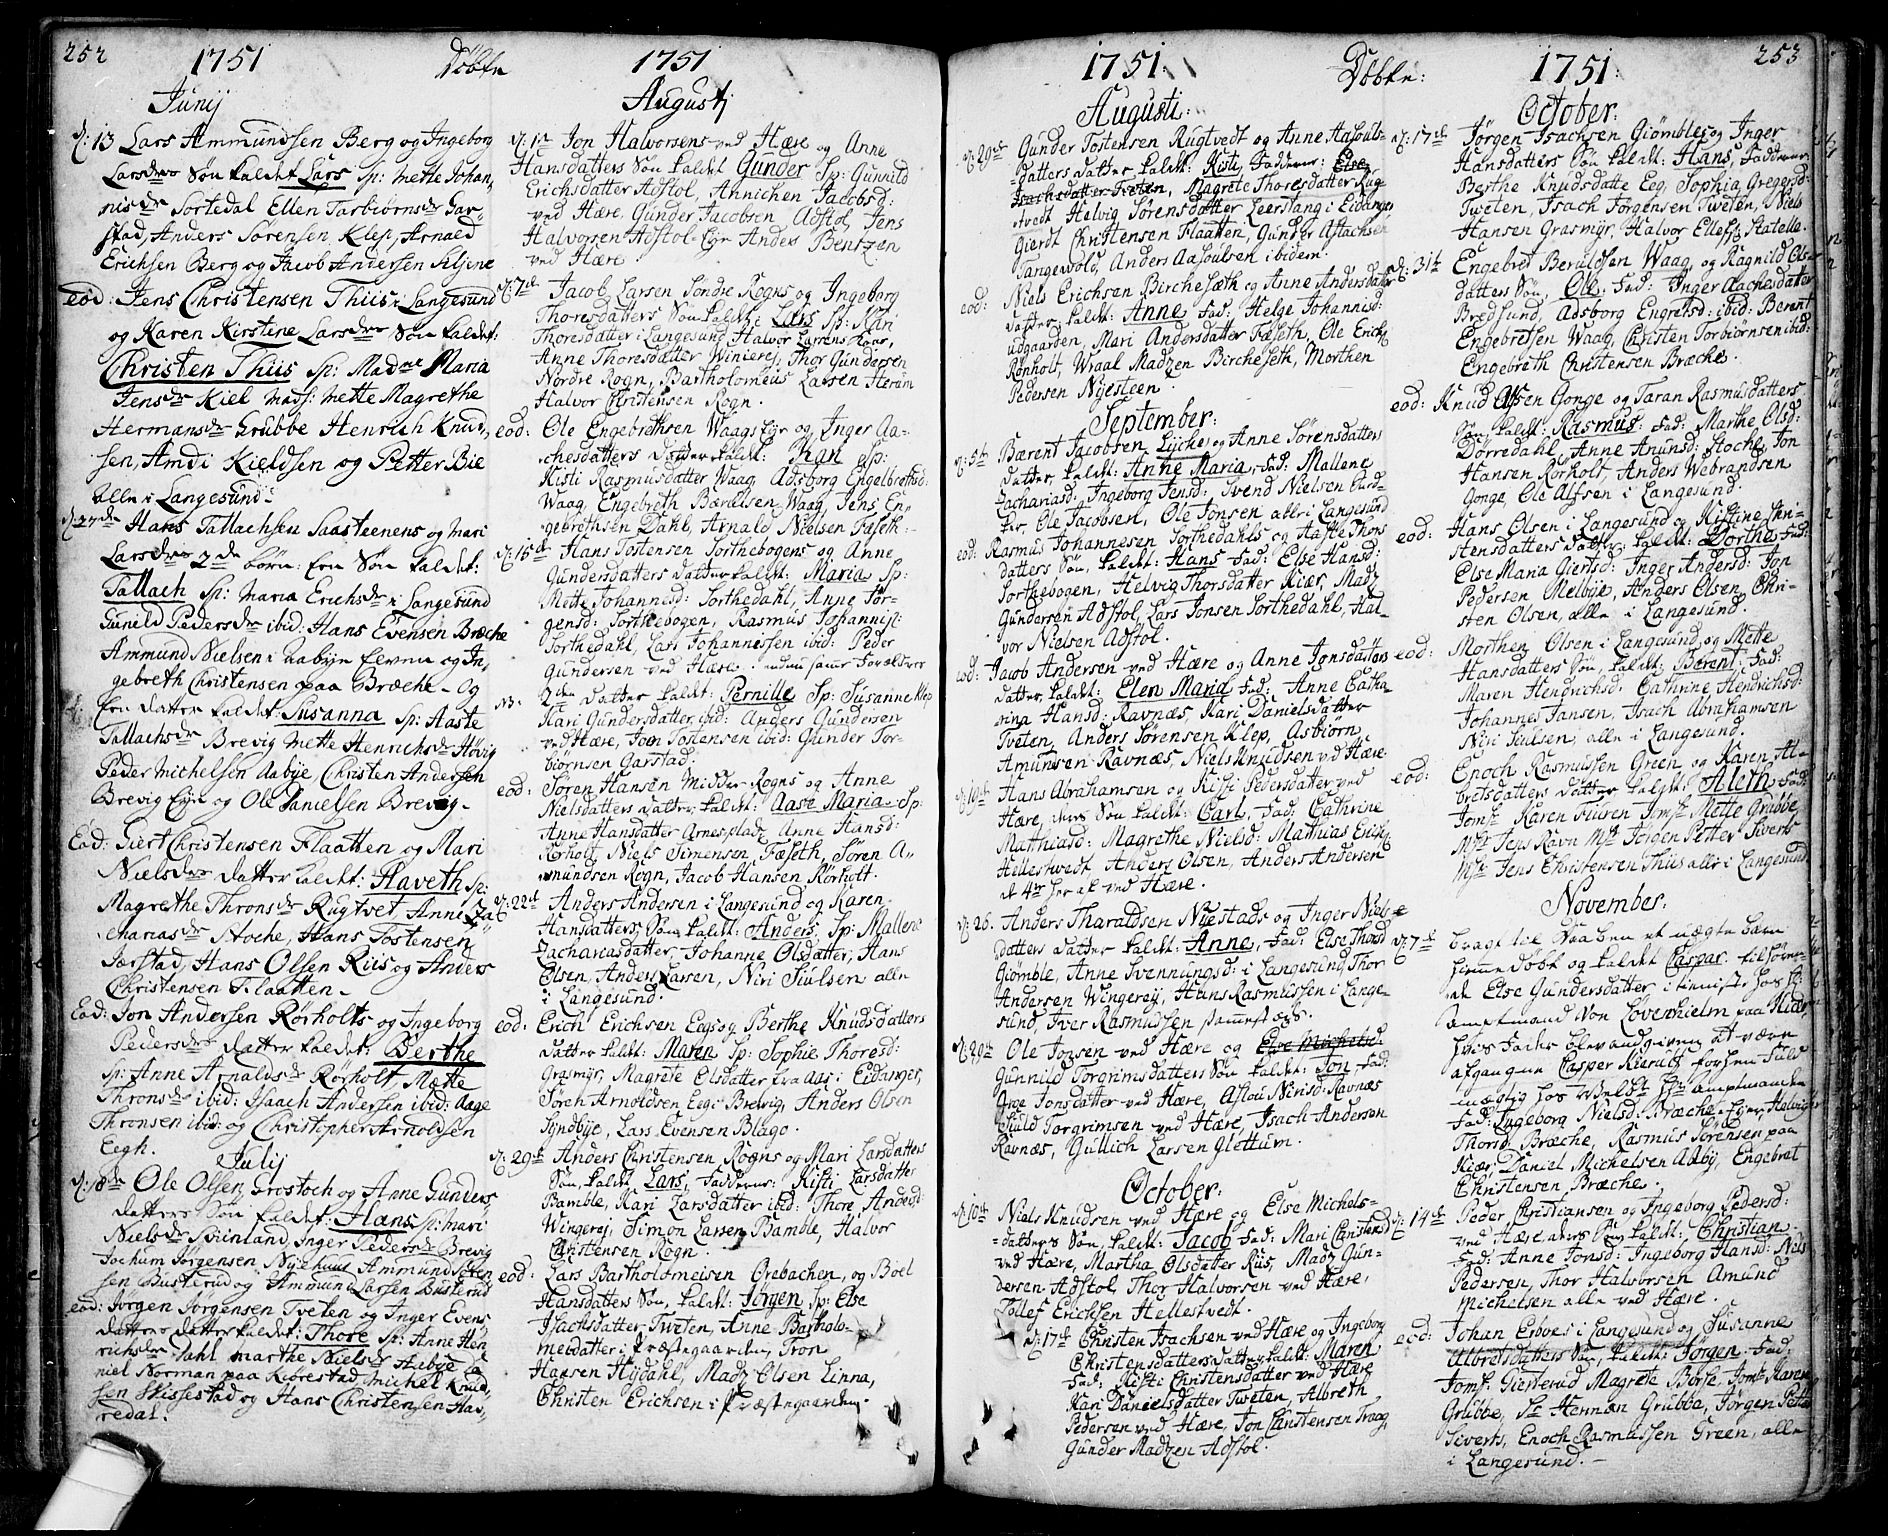 252
1751
Döbte
1751
Junij
d: 13 Lars Ammundsen Berg og Ingeborg
Larsdrs Søn kaldet Lars Sp: Mette Johan-
nisdr Sortedal Ellen Tarbiørnsdr Gar-
stad, Anders Sørensen Klep, Arnald
Erichsen Berg og Jacob Andersen Siljene
eod: Jens Christensen Thiis i Langesund
og Karen Kirstine Larsdrs Søn kaldet:
Christen Thiis Sp: Madme Maria
Jensdr Kiel Mads: Mette Magrethe
Hermansdr Grubbe Henrich Knud-
sen, Amdi Kieldsen og Petter Bie
alle i Langesund.
Hans Tallachsen Saasteenens og Mari
Larsdrs 2de børn: Een Søn kaldet:
Tallach Sp: Maria Erichsdr i Langesund
Gunild Pedersdr ibid: Hans Evensen Bræche
Ammund Nielsen i Aabÿe og In-
gebreth Christensen paa Bræche - Og
Een datter kaldet: Susanna Sp: Aaste
Tallachsdr Brevig Mette Henrichsdr Høvig
Peder Michelsen Aabÿe, Christen Andersen
Brevig Eÿe og Ole Danielsen Brevig -
Eod: Giert Christensen Flaatten og Mari
Nielsdrs datter kaldet: Haveth Sp:
Magrethe Thronsdr Rugtvet, Anne Za-
chariasdr Stoche, Hans Tostensen
Jarstad, Hans Olsen Riis og Anders
Christensen Flaatten -
Eod: Jon Andersen Rørholts og Ingeborg
Pedersdrs datter kaldet: Berthe
Sp: Anne Arnaldsdr Rørholt Mætte
Thronsdr ibid: Isaach Andersen ibid: Aage
Thronsen ibid: og Christopher Arnoldsen
Eegh.
Julij
Ole Olsen Grostoch og Anne Gunders
datters Søn kaldet: Hans Sp: Mari
Nielsdr Inger Pedersdr Brevig
Jochum Jørgensen Ammund Søren
sen Busterud og Ammund Larsen Busterud
eod: Jørgen Jørgensen Tveten og Inger Evens
datters datter kaldet: Thore Sp: Anne Hen
richsdr Dahl Marthe Nielsdr Aabÿe Da
niel Norman paa Kiørestad, Michel Knud
sen Skissestad og Hans Christensen Haf-
redal.
Augustj
d: 1st Jon Halvorsens ved Hære og Anne
Hansdatters Søn kaldt Gunder Sp: Gunnild
Erichsdatter Adstol, Annichen Jacobsd:
ved Hære, Gunder Jacobsen Adstol, Jens
Halvorsen Adstol-Eÿe Anders Bentzen
ved Hære
d: 7de Jacob Larsen Søndre Rogns og Ingeborg
Thoresdatters Søn kaldt: Lars Sp: Mari
Thoresdatter i Langesund, Halvor Larsens Kone,
Anne Thoresdatter Winierej, Thor Gundersen
Nordre Rogn, Bartholomeus Larsen Herum
Halvor Christensen Rogn.
eod: Ole Engebrethsen Waags Eÿe og Inger Aa-
chesdatters datter kaldt: Kari Sp:
Kisti Rasmusdatter Waag, Adsborg Engelbrethsd:
Waag, Engebreth Bærelsen Waag, Jens En-
gebrethsen Dahl, Arnald Nielsen Faseth.
d: 15de Hans Tostensen Sorthebogens og Anne
Gundersdatters datter kaldt: Maria Sp:
Mette Johannesd: Sorthedahl, Anne Jør-
gensd: Sorthebogen, Rasmus Johannisj:
Sorthedahl, Lars Johannessen ibid: Peder
Gundersen ved Hære. samme Foreldres
2den datter kaldt: Pernille Sp: Susanne Klep
Kari Gundersdatter ibid: Anders Gundersen
ved Hære, Jon Tostensen ibid: Gunder Tor-
biørnsen Garstad.
eod: Søren Hansen Midder-Rogns og Anne
Nielsdatters datter kaldt: Aase Maria Sp:
Anne Hansdatter Arnesplads, Anne Hansd:
Rørholt, Niels Simensen Fæseth, Søren A-
mundsen Rogn, Jacob Hansen Rørholt.
d: 22de Anders Andersen i Langesund og Karen
Hansdatters Søn kaldt: Anders, Sp: Mallene
Zachariasdatter, Johanne Olsdatter, Hans
Olsen, Anders Larsen, Niri Siulsen alle
i Langesund.
eod: Erich Erichsen Eegs og Berthe Knudsdatters
datter kaldt: Maren Sp: Sophie Thoresd:
Grasmÿr, Magrete Olsdatter fra Aas i Eidanger,
Søren Arnoldsen Eeg, Brevig, Anders Olsen
Sÿndbÿe, Lars Evensen Blago.
d: 29de Anders Christensen Rogns og Mari Larsdatters
Søn kaldt Lars, Faddere: Kisti Larsdatter
Bamble, Kari Larsdatter ibid: Thore
Wingerej Simon Larsen Bamble, Halvor
Christensen Rogn.
eod: Lars Bartholomeisen Orebachen, og Boel
Hansdatters Søn, kaldt: Jørgen Sp: Else
Isachsdatter Tweten, Anne Bartholo-
meidatter i Præstegaarden, Tron
Hansen Hÿdahl, Madz Olsen Linna,
Christen Erichsen i Præstegaarden.
1751.
Döbte:
1751.
253
Augusti:
d: 29de Gunder Tostensen Rugtvedt og Anne Aasouls-
datters datter kaldt: Kisti, Faddere: Else
Isachsdatter Tveten, Magrete Thoresdatter Rug-
tvedt Helvig Sørensdatter Leerstang i Eidanger
Gierdt Christensen Flaatten, Gunder Astachsen
Tangevold, Anders Aasoulsen ibidem.
eod: Niels Erichsen Bircheseth og Anne Andersdatter
datter, kaldt: Anne Fad: Helge Johannisd:
udgaarden, Mari Andersdatter Fæseth, Ole Erichs:
Rønholt, Wraal Madzen Bircheseth, Morthen
Pedersen Nÿesteen.
September:
d: 5th Bærent Jacobsen Lÿche og Anne Sørensdatters
datter kaldt: Anne Maria, Fad: Mallene
Zachariasd: Ingeborg Jensd: Svend Nielsen
Ole Jacobsen, Ole Jonsen alle i Langesund
eod: Rasmus Johannesen Sorthedahls og Aaste Thors
datters Søn, kaldt: Hans Fad: Else Hansd:
Sorthebogen, Helvig Thorsdatter Kiær, Madz
Gundersen Adstol, Lars Jonsen Sorthedahl, Hal-
vor Nielsen Adstol.
eod: Jacob Andersen ved Hære og Anne Jonsdatters
datter, kaldt: Elen Maria Fad: Anne Catha-
rina Hansd: Ravnæs, Kari Danielsdatter
Tveten, Anders Sørensen Klep, Asbiørn
Amunsen Ravnæs, Niels Knudsen ved Hære.
d: 19th Hans Abrahamsen og Kisti Pedersdatter ved
Hære, deres Søn kaldt: Carl, Fad: Cathrine
Mathiasd: Magrethe Nielsd: Matthias Erichs:
Hellestvedt Anders Olsen, Anders Andersen
de 4re her af ved Hære.
d: 26. Anders Tharaldsen Nÿestads og Inger Niels-
datters datter kaldt: Anne, Fad: Else Thorsd
Giømble, Anne Svennungsd: i Langesund, Thor
Andersen Wingereÿ, Hans Rasmussen i Lange-
sund, Iver Rasmussen sammesteds.
d: 29th Ole Jonsen ved Hære og Else Michelsd:
Gunnild Torgrimsdatters Søn kaldt: Jon Fad:
Inge Jonsdatter ved Hære, Aslou Nirisd: Ravnæs
Siuld Torgrimsen ved Hære, Isach Andersen
Ravnæs, Gullich Larsen Glettum.
October:
d: 10th Niels Knudsen ved Hære og Else Michels-
datters Søn, kaldt: Jacob Fad: Mari Christensd
ved Hære, Martha Olsdatter Riis, Madz Gun-
dersen Adstol, Thor Halvorsen ved Hære,
Tollef Erichsen Hellestvedt.
d: 17de Christen Isachsen ved Hære og Ingeborg
Christensdatters datter kaldt: Maren
Fad: Kisti Christensdatter ved Hære
Kari Danielsdatter Tweten, Albreth
Pedersen ved Hære, Jon Christensen Traag
Gunder Madzen Adstol.
October.
d: 17de Jørgen Isachsen Giømbles og Inger
Hansdatters Søn kaldt: Hans, Faddere:
Berthe Knudsdatte Eeg, Sophia Gregersd:
Tweten, Isach Jørgensen Tweten, Niels
Hansen Grasmÿr, Halvor Ellefs: Statelle.
d: 31te Engebret Beruldsen Waag, og Ragnild Ols-
datters Søn, Ole, Fad: Inger Aachesdatter
Bredsund, Adsborg Engretsd: ibid: Berent
Engebretsen Waag, Christen Torbiørnsen ibid:
Engebreth Christensen Bræche.
eod: Knud Olsen Gonge og Taran Rasmusdatters
Søn kaldt: Rasmus. Fad: Marthe Olsd:
Dørredahl, Anne Anunsd: Stoche, Jon
Hansen Rørholt, Anders Webrandsen
Gonge, Ole Alfsen i Langesund.
eod: Hans Olsen i Langesund og Kistine Chri-
stensdatters datter kaldt: Dorthe, Fad:
Else Maria Giertsd: Inger Andersd: Jon
Pedersen Melbÿe, Anders Olsen, Chri-
sten Olsen, alle i Langesund.
eod: Morthen Olsen i Langesund og Mette
Hansdatters Søn, kaldt: Berent, Fad:
Maren Hendrichsd: Cathrine Hendrichsd:
Johannes Jansen, Isach Abrahamsen
Niri Siulsen, alle i Langesund.
eod: Enoch Rasmussen Green og Karen Al-
bretsdatters datter kaldt: Aleth Fad:
Jomf: Karen Fluren Jomf: Mette Grubbe,
Msr Jens Ravn Msr Jørgen Petter Siverts
Msr Jens Christensen Thiis alle i Langesund.
November.
d: 7de bragt til Daaben et uægte barn
hiemme Døbt og kaldet Caspar tilhøren-
de Else Gundersdatter i tieniste hos Hr:
amptmand Von Løvenhielm paa
hvis Fader blev angiven at være
afgangne Casper Kieruls forhen Fuld
mægtig hos Welbt Hr: amptmanden
Fad: Ingeborg Nielsd: Bræche-Eÿe, Helvig
Thorsd: Bræche, Rasmus Sørensen paa
Kiær, Daniel Michelsen Aabÿ, Engebret
Christensen Bræche.
d: 14de Peder Christiansen og Ingeborg Pedersd:
ved Hære, deres Søn kaldt: Christian.
Fad: Anne Jonsd: Ingeborg Hansd: Niels
Pedersen, Thor Halvorsen Amund
Michelsen alle ved Hære.
eod: Johan Esbves i Langesund og Susanne
Albretsdatters Søn, kaldt: Jørgen. Fad:
Jomf: Gierterud Magrete Børse, Jomf: Karen
Grubbe, Sr Herman Grubbe, Jørgen Petter
Siverts, Enoch Rasmussen Green, alle
i Langesund. -